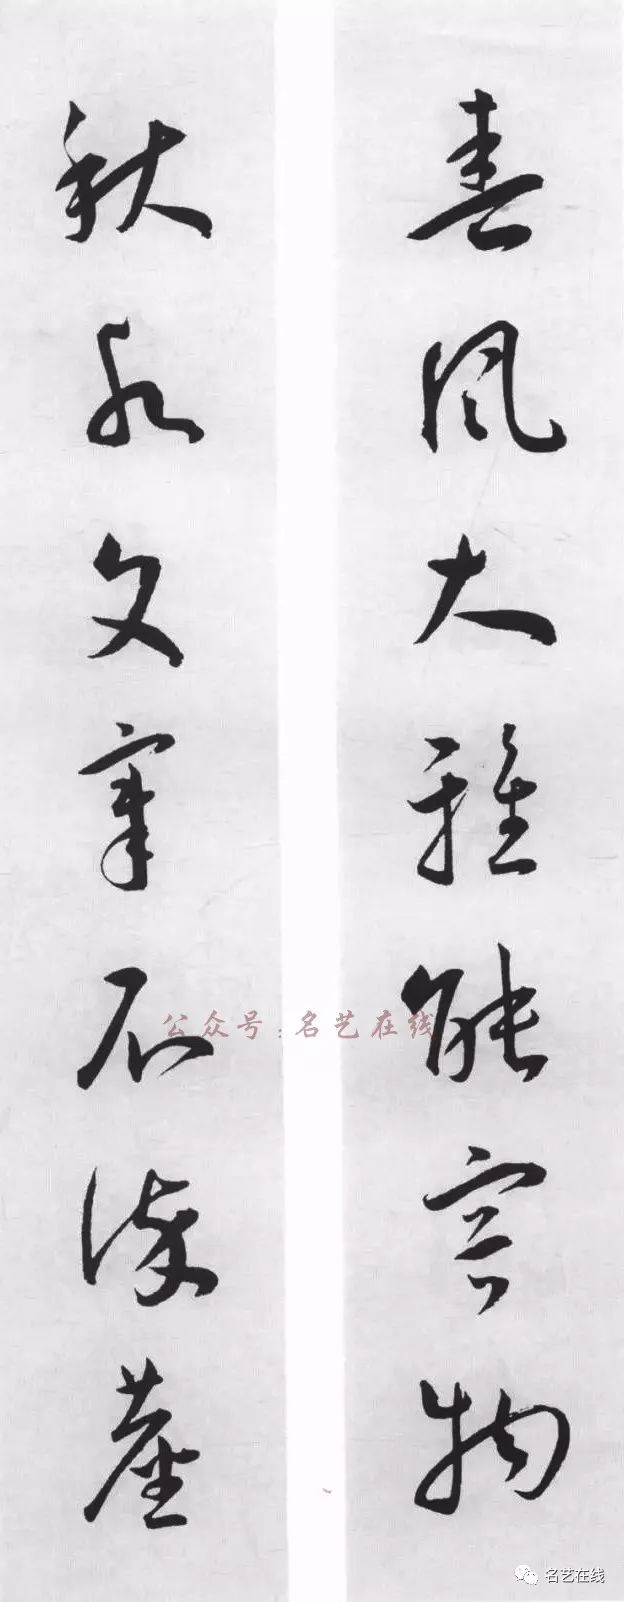 春风大雅能容物
秋水文章不染尘
公众号:名艺在线
名艺在线